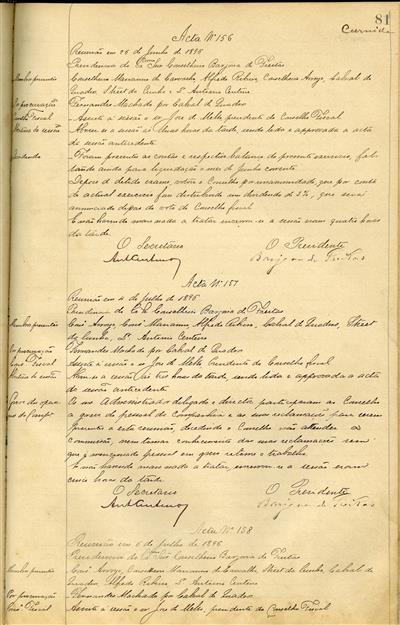 81
Acta Nº 156
Reunião em 26 de Junho de 1896
Presidencia do Exmo Snr Conselheiro Barjona de Freitas
Membros presentes Conselheiro Marianno de Carvalho, Alfredo Ribeiro, Conselheiro Arroyo, Cabral de
Quadros, Street da Cunha, e Dr Antonio Centeno
Por procuração Fernandes Machado por Cabral de Quadros
Conselho Fiscal Assiste á sessão o snr José de Mello, presidente do Conselho Fiscal
Abriu-se a sessão ás duas horas da tarde, sendo lida e approvada a acta
da sessão antecedente.
Dividendo Foram presentes as contas e respectivo balanço do presente exercicio, fal-
tando ainda para liquidação o mez de Junho corrente
Depois de detido exame, votou o Conselho por unanimidade, que por conta
do actual exercicio fosse distribuido um dividendo de 3%, que será
annunciado depois do voto do Conselho fiscal
E não havendo mais nada a tratar encerrou-se a sessão eram quatro horas
da tarde.
O Secretario O Presidente
Barjona de Freitas
Acta Nº 157
Reunião em 4 de Julho de 1896
Presidencia do Exmo Snr Conselheiro Barjona de Freitas
Membros presentes Consº Arroyo, Consº Marianno, Alfredo Ribeiro, Cabral de Quadros, Street
da Cunha, Dr Antonio Centeno
Por procuração Fernandes Machado por Cabral de Quadros
Consº Fiscal Assiste á sessão o snr José de Mello Presidente do Conselho fiscal
Abriu-se a sessão ás tres horas da tarde, sendo lida e approvada a acta
da sessão antecedente
Os snrs Administrador delegado e director participaram ao Conselho
a greve do pessoal da Companhia e as suas reclamações para serem
presentes a esta commissão, decidindo o Conselho não attender a
commissão, nem tomar conhecimento das suas reclamações sem
que o mencionado pessoal em greve retome o trabalho.
E não havendo mais nada a tratar, encerrou-se a sessão eram
cinco horas da tarde.
O Secretario O Presidente
Barjona de Freitas
Acta Nº 158
Reunião em 6 de Julho de 1896
Presidencia do Exmo Snr Conselheiro Barjona de Freitas
Membros presentes Consº Arroyo, Conselheiro Marianno de Carvalho, Street da Cunha, Cabral de
Quadros, Alfredo Ribeiro, Dr Antonio Centeno
Por procuração Fernandes Machado por Cabral de Quadros
Consº Fiscal Assiste á sessão o snr José de Mello, presidente do Conselho Fiscal